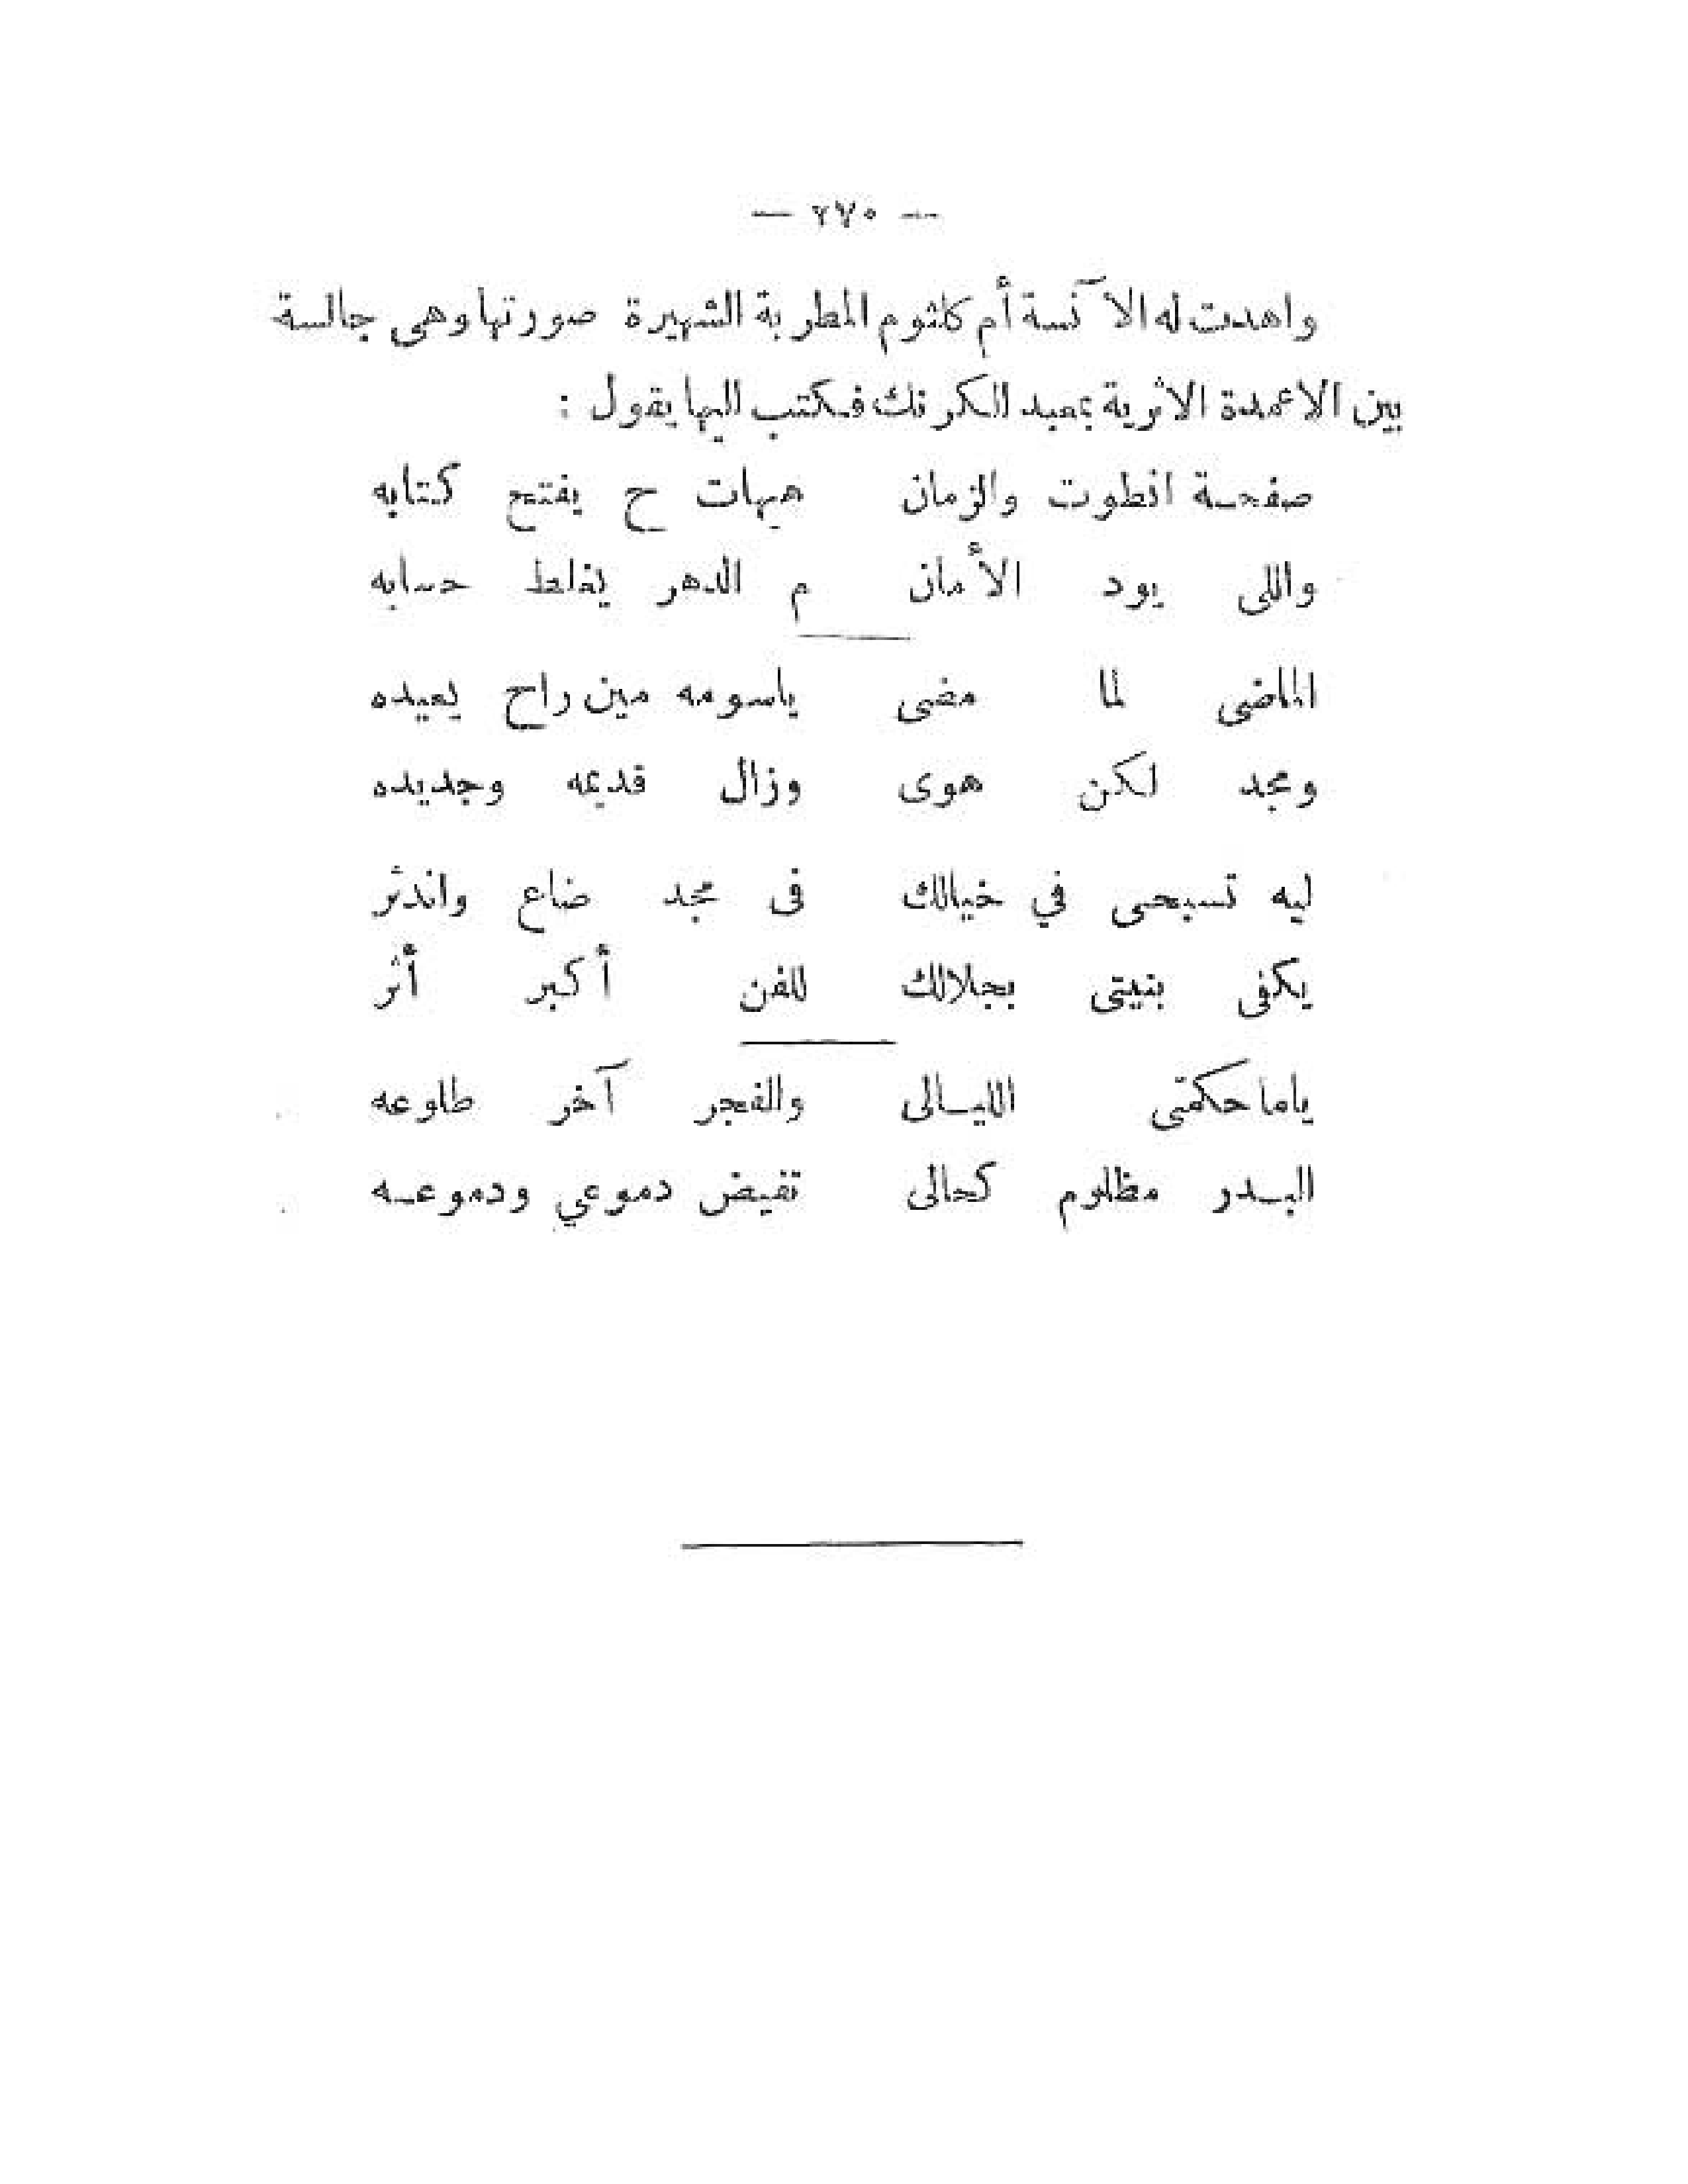 — ٢٧٠ —
واهدت له الآنسة أم كلثوم المطربة الشهيرة صورتها وهى جالسة
بين الاعمدة الاثرية بمعبد الكرنك فكتب اليها يقول :
صفحة انطوت والزمان هيهات ح يفتح كتابه
واللى يود الأمان م الدهر يغلط حسابه
الماضى لما مضى ياسومه مين راح يعيده
ومجد لكن هوى وزال قديمه وجديده
ليه تسبحى في خيالك فى مجد ضاع واندثر
يكفى بنيتى بجلالك للفن أكبر أثر
ياما حكمتى الليالى والفجر آخر طلوعه
البدر مظلوم كحالى تفيض دموعي ودموعه